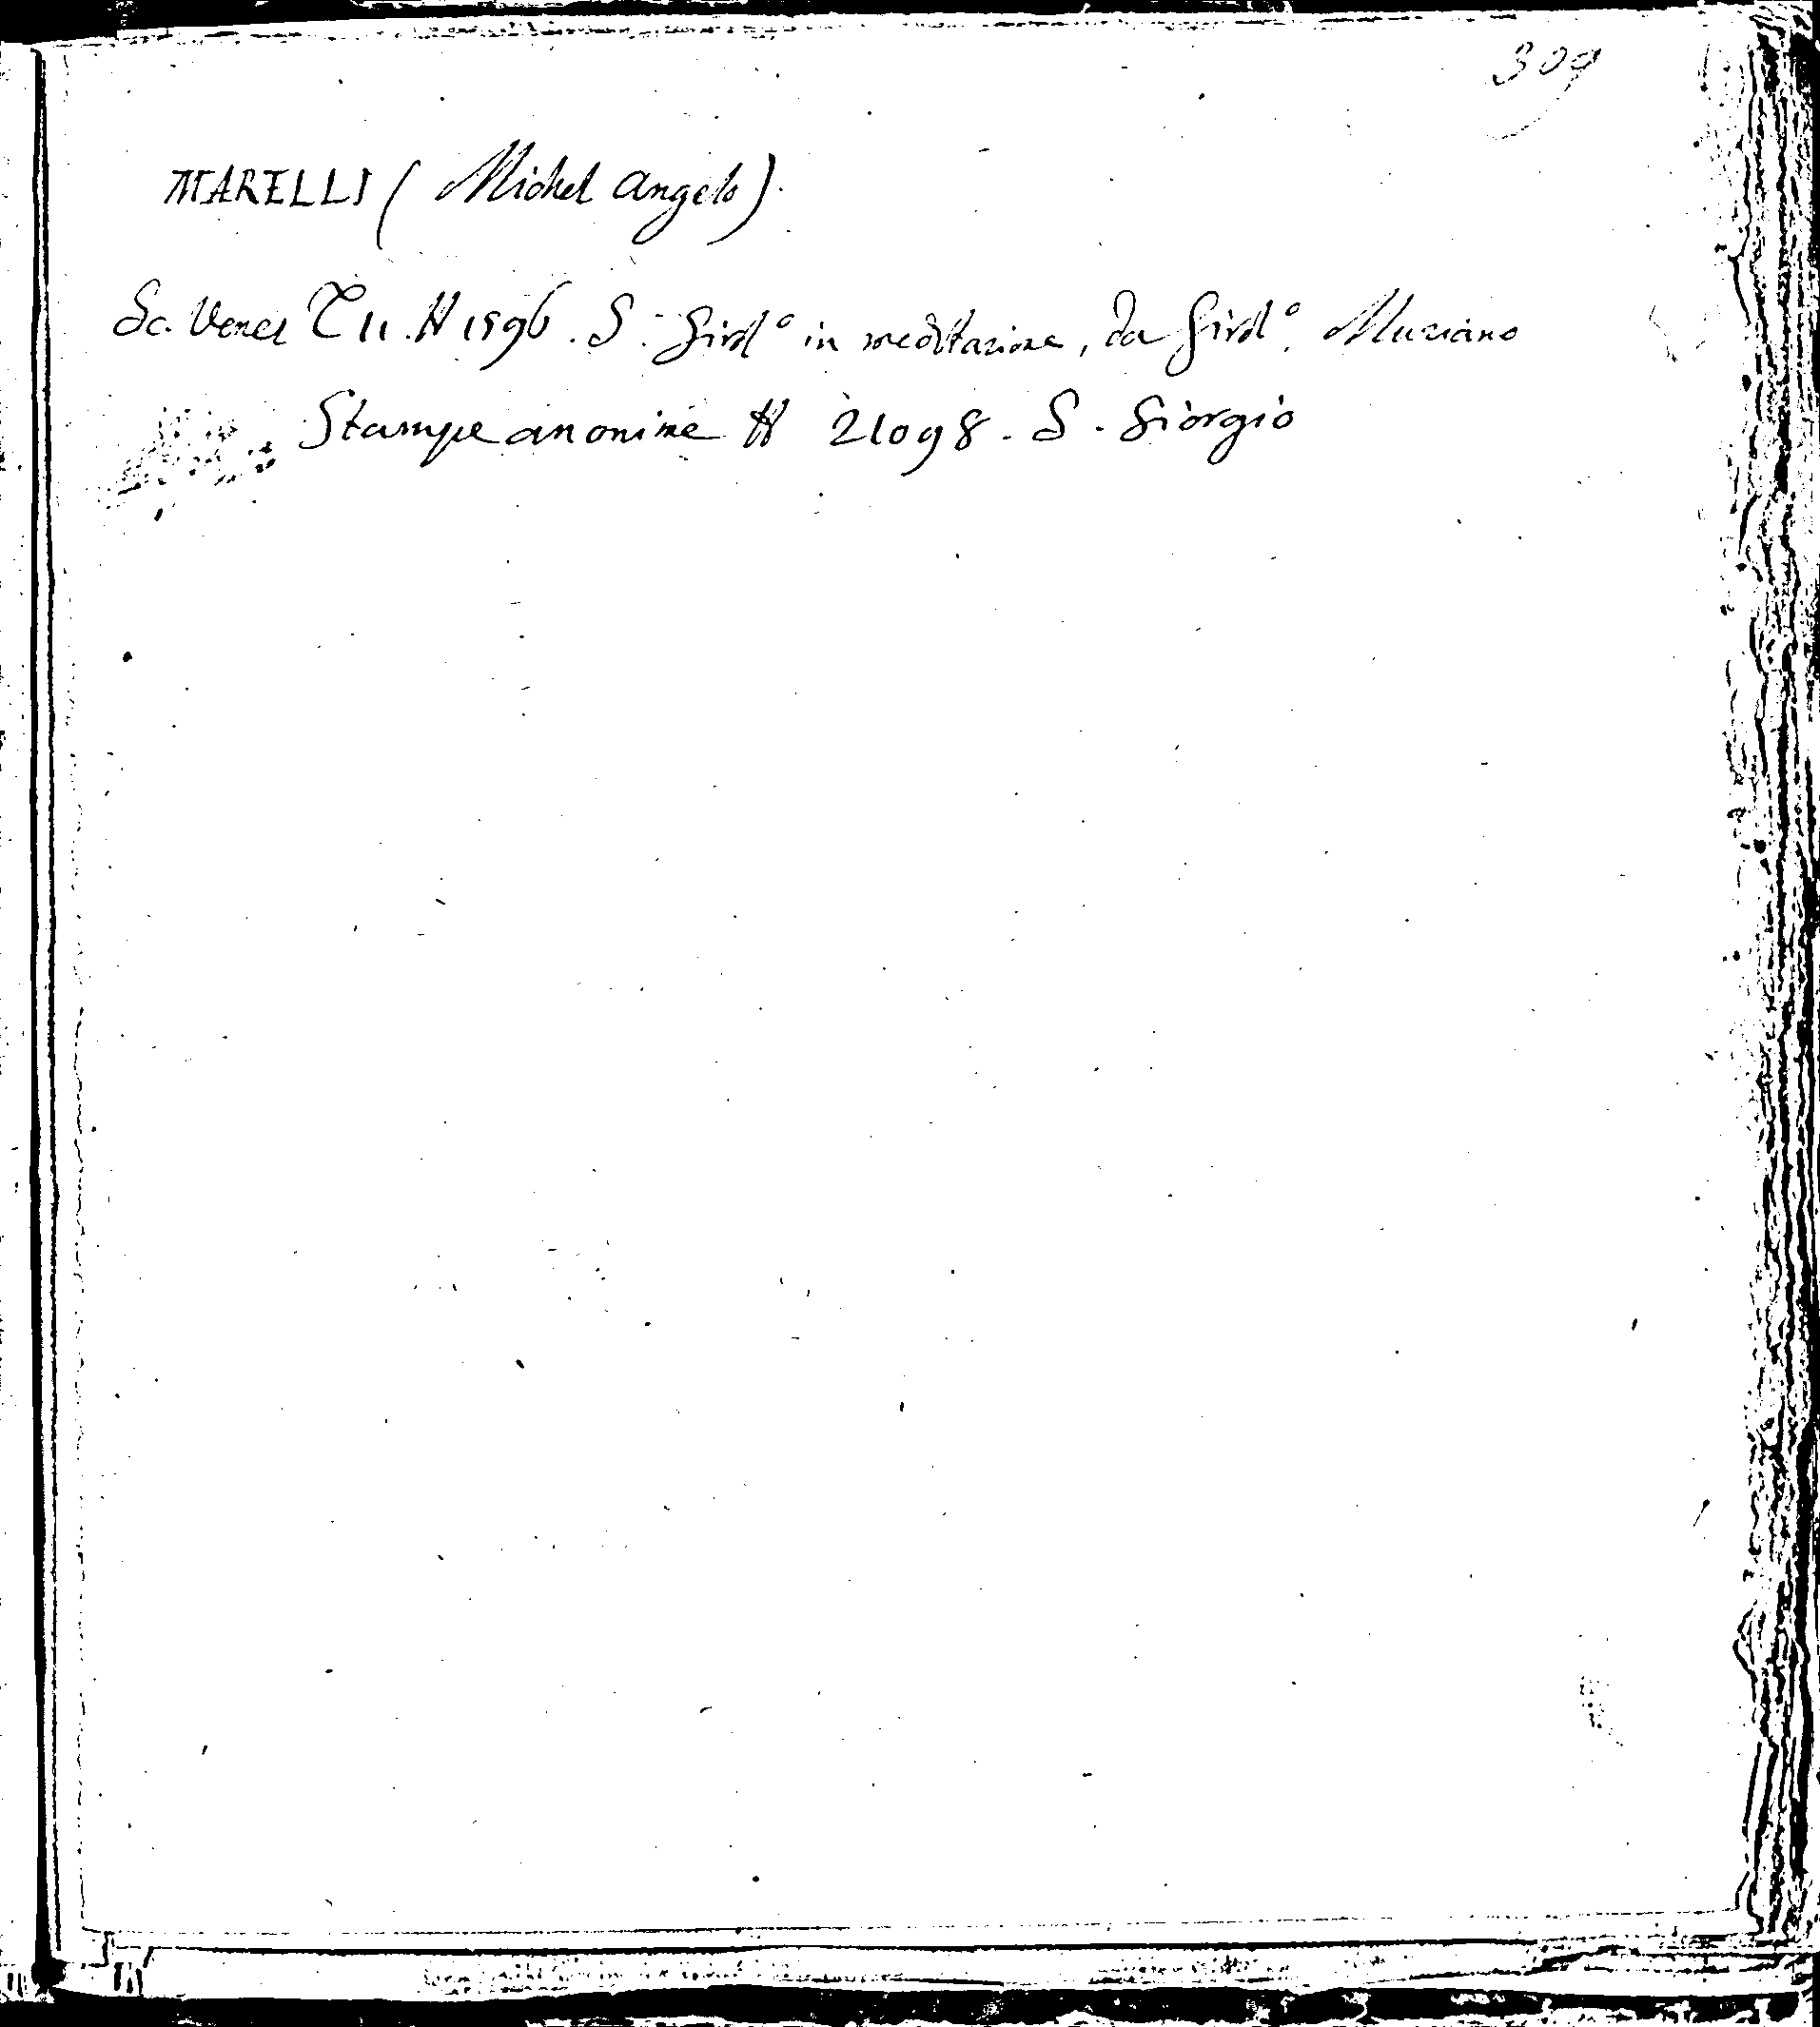 309
MARELLI (Michel Angelo).
Sc. Venet T 11. N 1596. S. Girol° in meditazione, da Girol°. Muziano
Stampe anonime N 21098. S. Giorgio